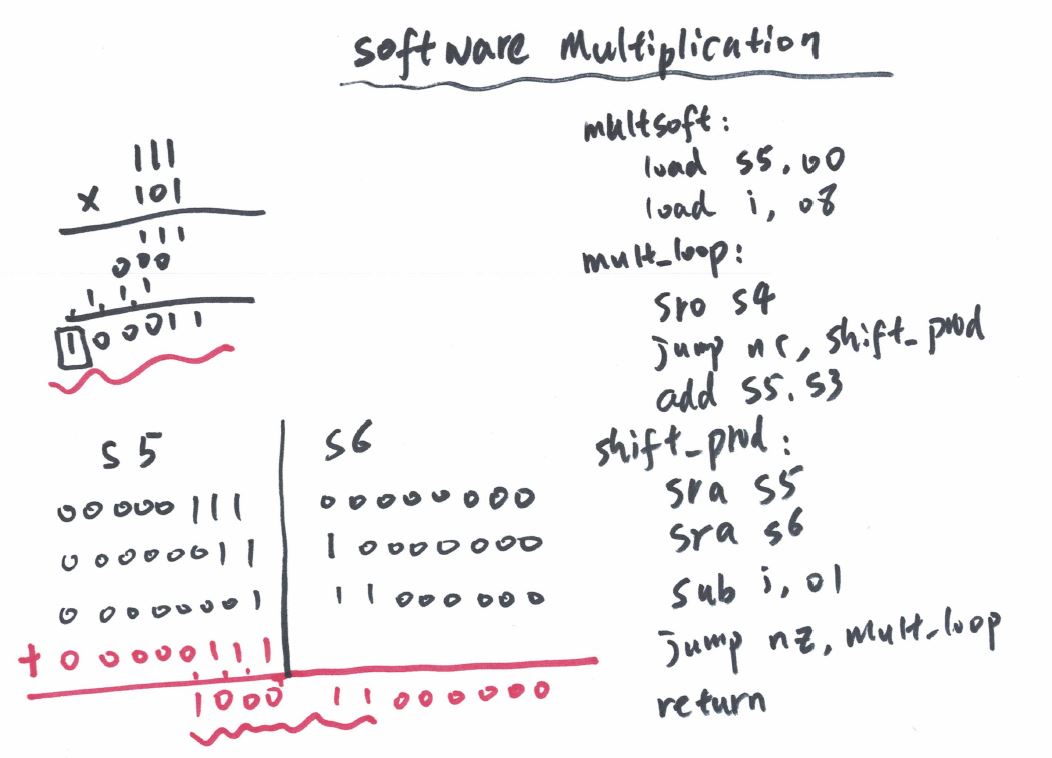 software Multiplication
111
x 101
111
000
111
100011
s5 s6
00000111 00000000
00000011 10000000
00000001 11000000
+ 00000111
1000 11000000
multsoft:
load s5, 00
load i, 08
mult_loop:
sr0 s4
jump nc, shift_prod
add s5, s3
shift_prod:
sra s5
sra s6
sub i, 01
jump nz, mult_loop
return